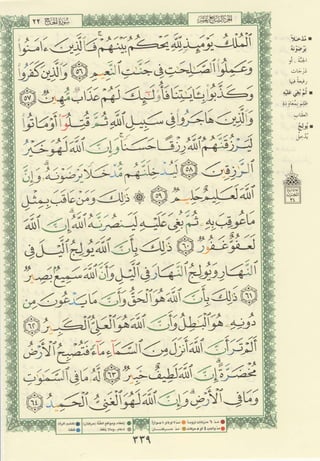 الجزء السابع عشر
سورة الحج ٢٢
ٱلْمُلْكُ يَوْمَئِذٍ لِّلَّهِ يَحْكُمُ بَيْنَهُمْ فَٱلَّذِينَ ءَامَنُوا۟
وَعَمِلُوا۟ ٱلصَّٰلِحَٰتِ فِى جَنَّٰتِ ٱلنَّعِيمِ ٥٦ وَٱلَّذِينَ كَفَرُوا۟
وَكَذَّبُوا۟ بِـَٔايَٰتِنَا فَأُو۟لَٰٓئِكَ لَهُمْ عَذَابٌ مُّهِينٌ ٥٧
وَٱلَّذِينَ هَاجَرُوا۟ فِى سَبِيلِ ٱللَّهِ ثُمَّ قُتِلُوٓا۟ أَوْ مَاتُوا۟
لَيَرْزُقَنَّهُمُ ٱللَّهُ رِزْقًا حَسَنًا وَإِنَّ ٱللَّهَ لَهُوَ خَيْرُ
ٱلرَّٰزِقِينَ ٥٨ لَيُدْخِلَنَّهُم مُّدْخَلًا يَرْضَوْنَهُۥ وَإِنَّ
ٱللَّهَ لَعَلِيمٌ حَلِيمٌ ٥٩ ذَٰلِكَ وَمَنْ عَاقَبَ بِمِثْلِ
مَا عُوقِبَ بِهِۦ ثُمَّ بُغِىَ عَلَيْهِ لَيَنصُرَنَّهُ ٱللَّهُ إِنَّ ٱللَّهَ
لَعَفُوٌّ غَفُورٌ ٦٠ ذَٰلِكَ بِأَنَّ ٱللَّهَ يُولِجُ ٱلَّيْلَ فِى
ٱلنَّهَارِ وَيُولِجُ ٱلنَّهَارَ فِى ٱلَّيْلِ وَأَنَّ ٱللَّهَ سَمِيعٌۢ بَصِيرٌ
٦١ ذَٰلِكَ بِأَنَّ ٱللَّهَ هُوَ ٱلْحَقُّ وَأَنَّ مَا يَدْعُونَ مِن
دُونِهِۦ هُوَ ٱلْبَٰطِلُ وَأَنَّ ٱللَّهَ هُوَ ٱلْعَلِىُّ ٱلْكَبِيرُ ٦٢
أَلَمْ تَرَ أَنَّ ٱللَّهَ أَنزَلَ مِنَ ٱلسَّمَآءِ مَآءً فَتُصْبِحُ ٱلْأَرْضُ
مُخْضَرَّةً إِنَّ ٱللَّهَ لَطِيفٌ خَبِيرٌ ٦٣ لَّهُۥ مَا فِى ٱلسَّمَٰوَٰتِ
وَمَا فِى ٱلْأَرْضِ وَإِنَّ ٱللَّهَ لَهُوَ ٱلْغَنِىُّ ٱلْحَمِيدُ ٦٤
مُدْخَلًا
يَرْضَوْنَهُ
الجنة، أو
درجات
رفيعة فيها
بُغِيَ عَلَيْهِ
العقاب
يُولِجُ
يُدخل
٣٣٩